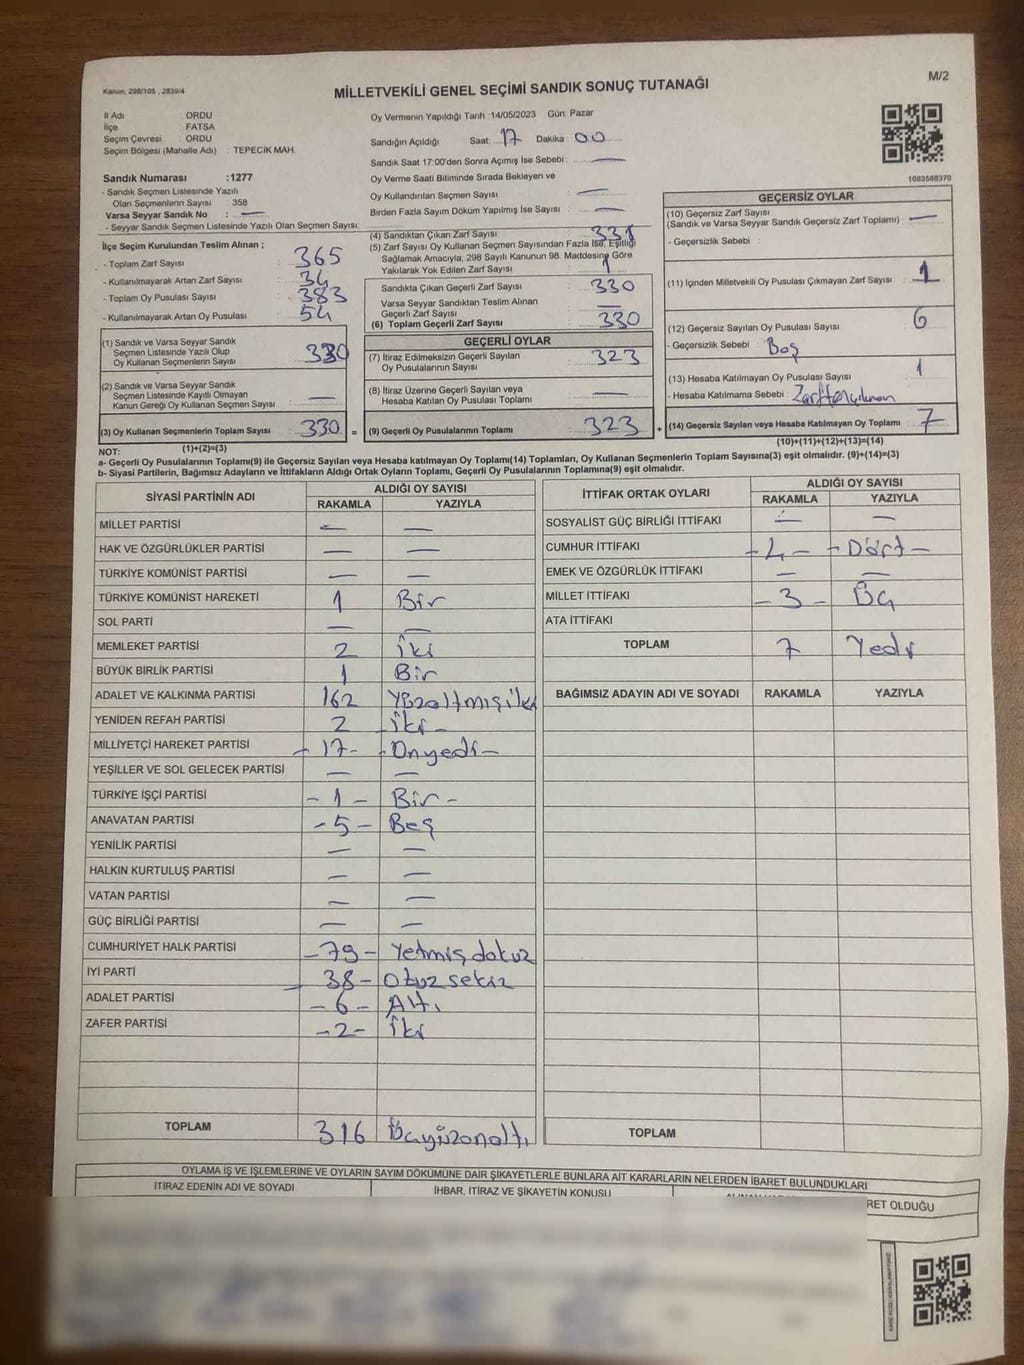 Kanun, 298/105 , 2839/4
M/2
MİLLETVEKİLİ GENEL SEÇİMİ SANDIK SONUÇ TUTANAĞI
İl Adı ORDU
İlçe FATSA
Seçim Çevresi ORDU
Seçim Bölgesi (Mahalle Adı) : TEPECİK MAH.
Sandık Numarası :1277
- Sandık Seçmen Listesinde Yazılı
Olan Seçmenlerin Sayısı : 358
Varsa Seyyar Sandık No : —
- Seyyar Sandık Seçmen Listesinde Yazılı Olan Seçmen Sayısı:
Oy Vermenin Yapıldığı Tarih :14/05/2023 Gün: Pazar
Sandığın Açıldığı Saat: 17 Dakika 00
Sandık Saat 17:00'den Sonra Açımış İse Sebebi : —
Oy Verme Saati Bitiminde Sırada Bekleyen ve
Oy Kullandırılan Seçmen Sayısı : —
Birden Fazla Sayım Döküm Yapılmış İse Sayısı : —
1083568370
İlçe Seçim Kurulundan Teslim Alınan ;
- Toplam Zarf Sayısı : 365
- Kullanılmayarak Artan Zarf Sayısı : 34
- Toplam Oy Pusulası Sayısı : 383
- Kullanılmayarak Artan Oy Pusulası : 54
(1) Sandık ve Varsa Seyyar Sandık
Seçmen Listesinde Yazılı Olup
Oy Kullanan Seçmenlerin Sayısı : 330
(2) Sandık ve Varsa Seyyar Sandık
Seçmen Listesinde Kayıtlı Olmayan
Kanun Gereği Oy Kullanan Seçmen Sayısı : —
(3) Oy Kullanan Seçmenlerin Toplam Sayısı : 330 =
(1)+(2)=(3)
(4) Sandıktan Çıkan Zarf Sayısı : 331
(5) Zarf Sayısı Oy Kullanan Seçmen Sayısından Fazla İse, Eşitliği
Sağlamak Amacıyla; 298 Sayılı Kanunun 98. Maddesine Göre
Yakılarak Yok Edilen Zarf Sayısı : 1
Sandıkta Çıkan Geçerli Zarf Sayısı : 330
Varsa Seyyar Sandıktan Teslim Alınan
Geçerli Zarf Sayısı : —
(6) Toplam Geçerli Zarf Sayısı : 330
GEÇERLİ OYLAR
(7) İtiraz Edilmeksizin Geçerli Sayılan
Oy Pusulalarının Sayısı : 323
(8) İtiraz Üzerine Geçerli Sayılan veya
Hesaba Katılan Oy Pusulası Toplamı : —
(9) Geçerli Oy Pusulalarının Toplamı : 323 +
GEÇERSİZ OYLAR
(10) Geçersiz Zarf Sayısı
(Sandık ve Varsa Seyyar Sandık Geçersiz Zarf Toplamı) : —
- Geçersizlik Sebebi :
(11) İçinden Milletvekili Oy Pusulası Çıkmayan Zarf Sayısı : 1
(12) Geçersiz Sayılan Oy Pusulası Sayısı : 6
- Geçersizlik Sebebi : Boş
(13) Hesaba Katılmayan Oy Pusulası Sayısı : 1
- Hesaba Katılmama Sebebi :
(14) Geçersiz Sayılan veya Hesaba Katılmayan Oy Toplamı : 7
(10)+(11)+(12)+(13)=(14)
NOT:
a- Geçerli Oy Pusulalarının Toplamı(9) ile Geçersiz Sayılan veya Hesaba katılmayan Oy Toplamı(14) Toplamları, Oy Kullanan Seçmenlerin Toplam Sayısına(3) eşit olmalıdır. (9)+(14)=(3)
b- Siyasi Partilerin, Bağımsız Adayların ve İttifakların Aldığı Ortak Oyların Toplamı, Geçerli Oy Pusulalarının Toplamına(9) eşit olmalıdır.
SİYASİ PARTİNİN ADI ALDIĞI OY SAYISI
RAKAMLA YAZIYLA
MİLLET PARTİSİ — —
HAK VE ÖZGÜRLÜKLER PARTİSİ — —
TÜRKİYE KOMÜNİST PARTİSİ — —
TÜRKİYE KOMÜNİST HAREKETİ 1 Bir
SOL PARTİ — —
MEMLEKET PARTİSİ 2 İki
BÜYÜK BİRLİK PARTİSİ 1 Bir
ADALET VE KALKINMA PARTİSİ 162 Yüzaltmışiki
YENİDEN REFAH PARTİSİ 2 -İki-
MİLLİYETÇİ HAREKET PARTİSİ -17- -Onyedi-
YEŞİLLER VE SOL GELECEK PARTİSİ — —
TÜRKİYE İŞÇİ PARTİSİ -1- Bir-
ANAVATAN PARTİSİ -5- Beş
YENİLİK PARTİSİ — —
HALKIN KURTULUŞ PARTİSİ — —
VATAN PARTİSİ — —
GÜÇ BİRLİĞİ PARTİSİ — —
CUMHURİYET HALK PARTİSİ -79- Yetmiş dokuz
İYİ PARTİ 38- Otuz sekiz
ADALET PARTİSİ -6- Altı
ZAFER PARTİSİ -2- İki
TOPLAM 316 Üçyüzonaltı
İTTİFAK ORTAK OYLARI ALDIĞI OY SAYISI
RAKAMLA YAZIYLA
SOSYALİST GÜÇ BİRLİĞİ İTTİFAKI — —
CUMHUR İTTİFAKI -4- -Dört-
EMEK VE ÖZGÜRLÜK İTTİFAKI — —
MİLLET İTTİFAKI -3- Üç
ATA İTTİFAKI
TOPLAM 7 Yedi
BAĞIMSIZ ADAYIN ADI VE SOYADI RAKAMLA YAZIYLA
TOPLAM
OYLAMA İŞ VE İŞLEMLERİNE VE OYLARIN SAYIM DÖKÜMÜNE DAİR ŞİKAYETLERLE BUNLARA AİT KARARLARIN NELERDEN İBARET BULUNDUKLARI
İTİRAZ EDENİN ADI VE SOYADI İHBAR, İTİRAZ VE ŞİKAYETİN KONUSU
RET OLDUĞU